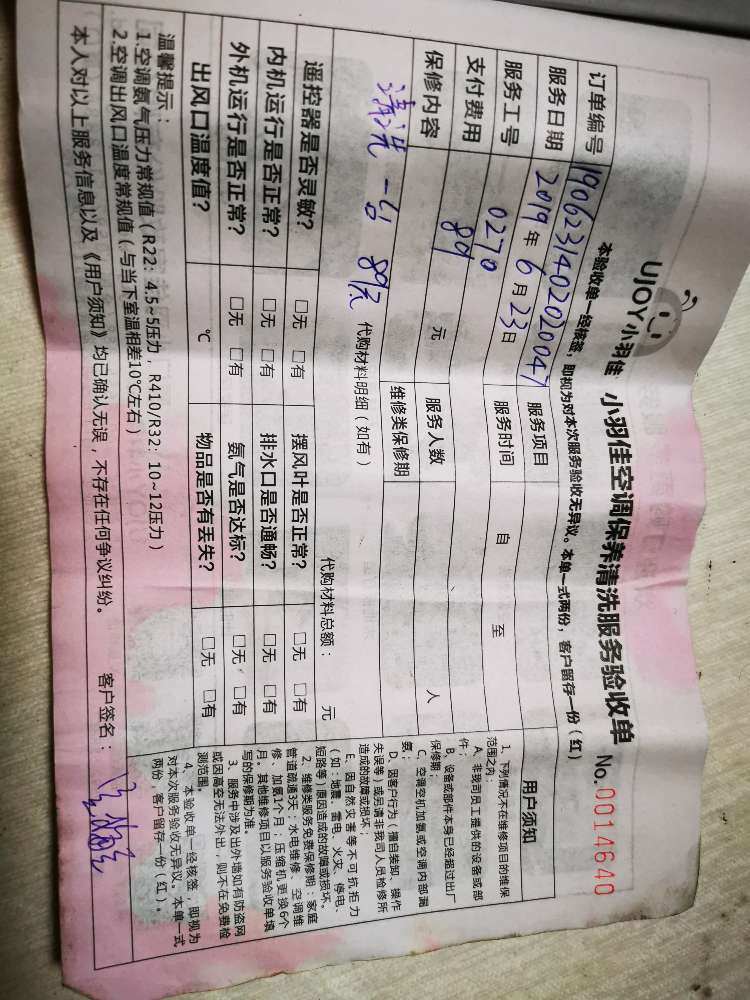 UJOY小羽佳 小羽佳空调保养清洗服务验收单 No.0014640
本验收单一经核签，即视为对本次服务验收无异议。本单一式两份，客户留存一份（红）
订单编号 190623140202047 服务项目
服务日期 2019年6月23日 服务时间 自 至
服务工号 0270
支付费用 89 元 服务人数 人
保修内容 维修类保修期
清洗一台 89元 代购材料明细（如有）
代购材料总额： 元
遥控器是否灵敏？ □无 □有 摆风叶是否正常？ □无 □有
内机运行是否正常？ □无 □有 排水口是否通畅？ □无 □有
外机运行是否正常？ □无 □有 氨气是否达标？ □无 □有
出风口温度值？ ℃ 物品是否有丢失？ □无 □有
温馨提示：
1.空调氨气压力常规值（R22：4.5~5压力，R410/R32：10~12压力）
2.空调出风口温度常规值（与当下室温相差10℃左右）
本人对以上服务信息以及《用户须知》均已确认无误，不存在任何争议纠纷。 客户签名：
用户须知
1、下列情况不在维修项目的维保
范围之内：
A、非我司员工提供的设备或部
件；
B、设备或部件本身已经超过出厂
保修期；
C、空调空机加氨或空调内部漏
氨；
D、因客户行为：擅自装卸、操作
失误等，或另请非我司人员检修所
造成的故障或损坏；
E、因自然灾害等不可抗拒力
（如：地震、雷电、火灾、停电、
短路等）原因造成的故障或损坏。
2、维修类服务免费保修期：家庭
管道疏通3天；水电维修、空调维
修、加氨1个月；压缩机更换6个
月。其他维修项目以服务验收单填
写的保修期为准。
3、服务中涉及出外墙如有防盗网
或因高空无法外出，则不在免费检
测范围。
4、本验收单一经核签，即视为
对本次服务验收无异议。本单一式
两份，客户留存一份（红）。